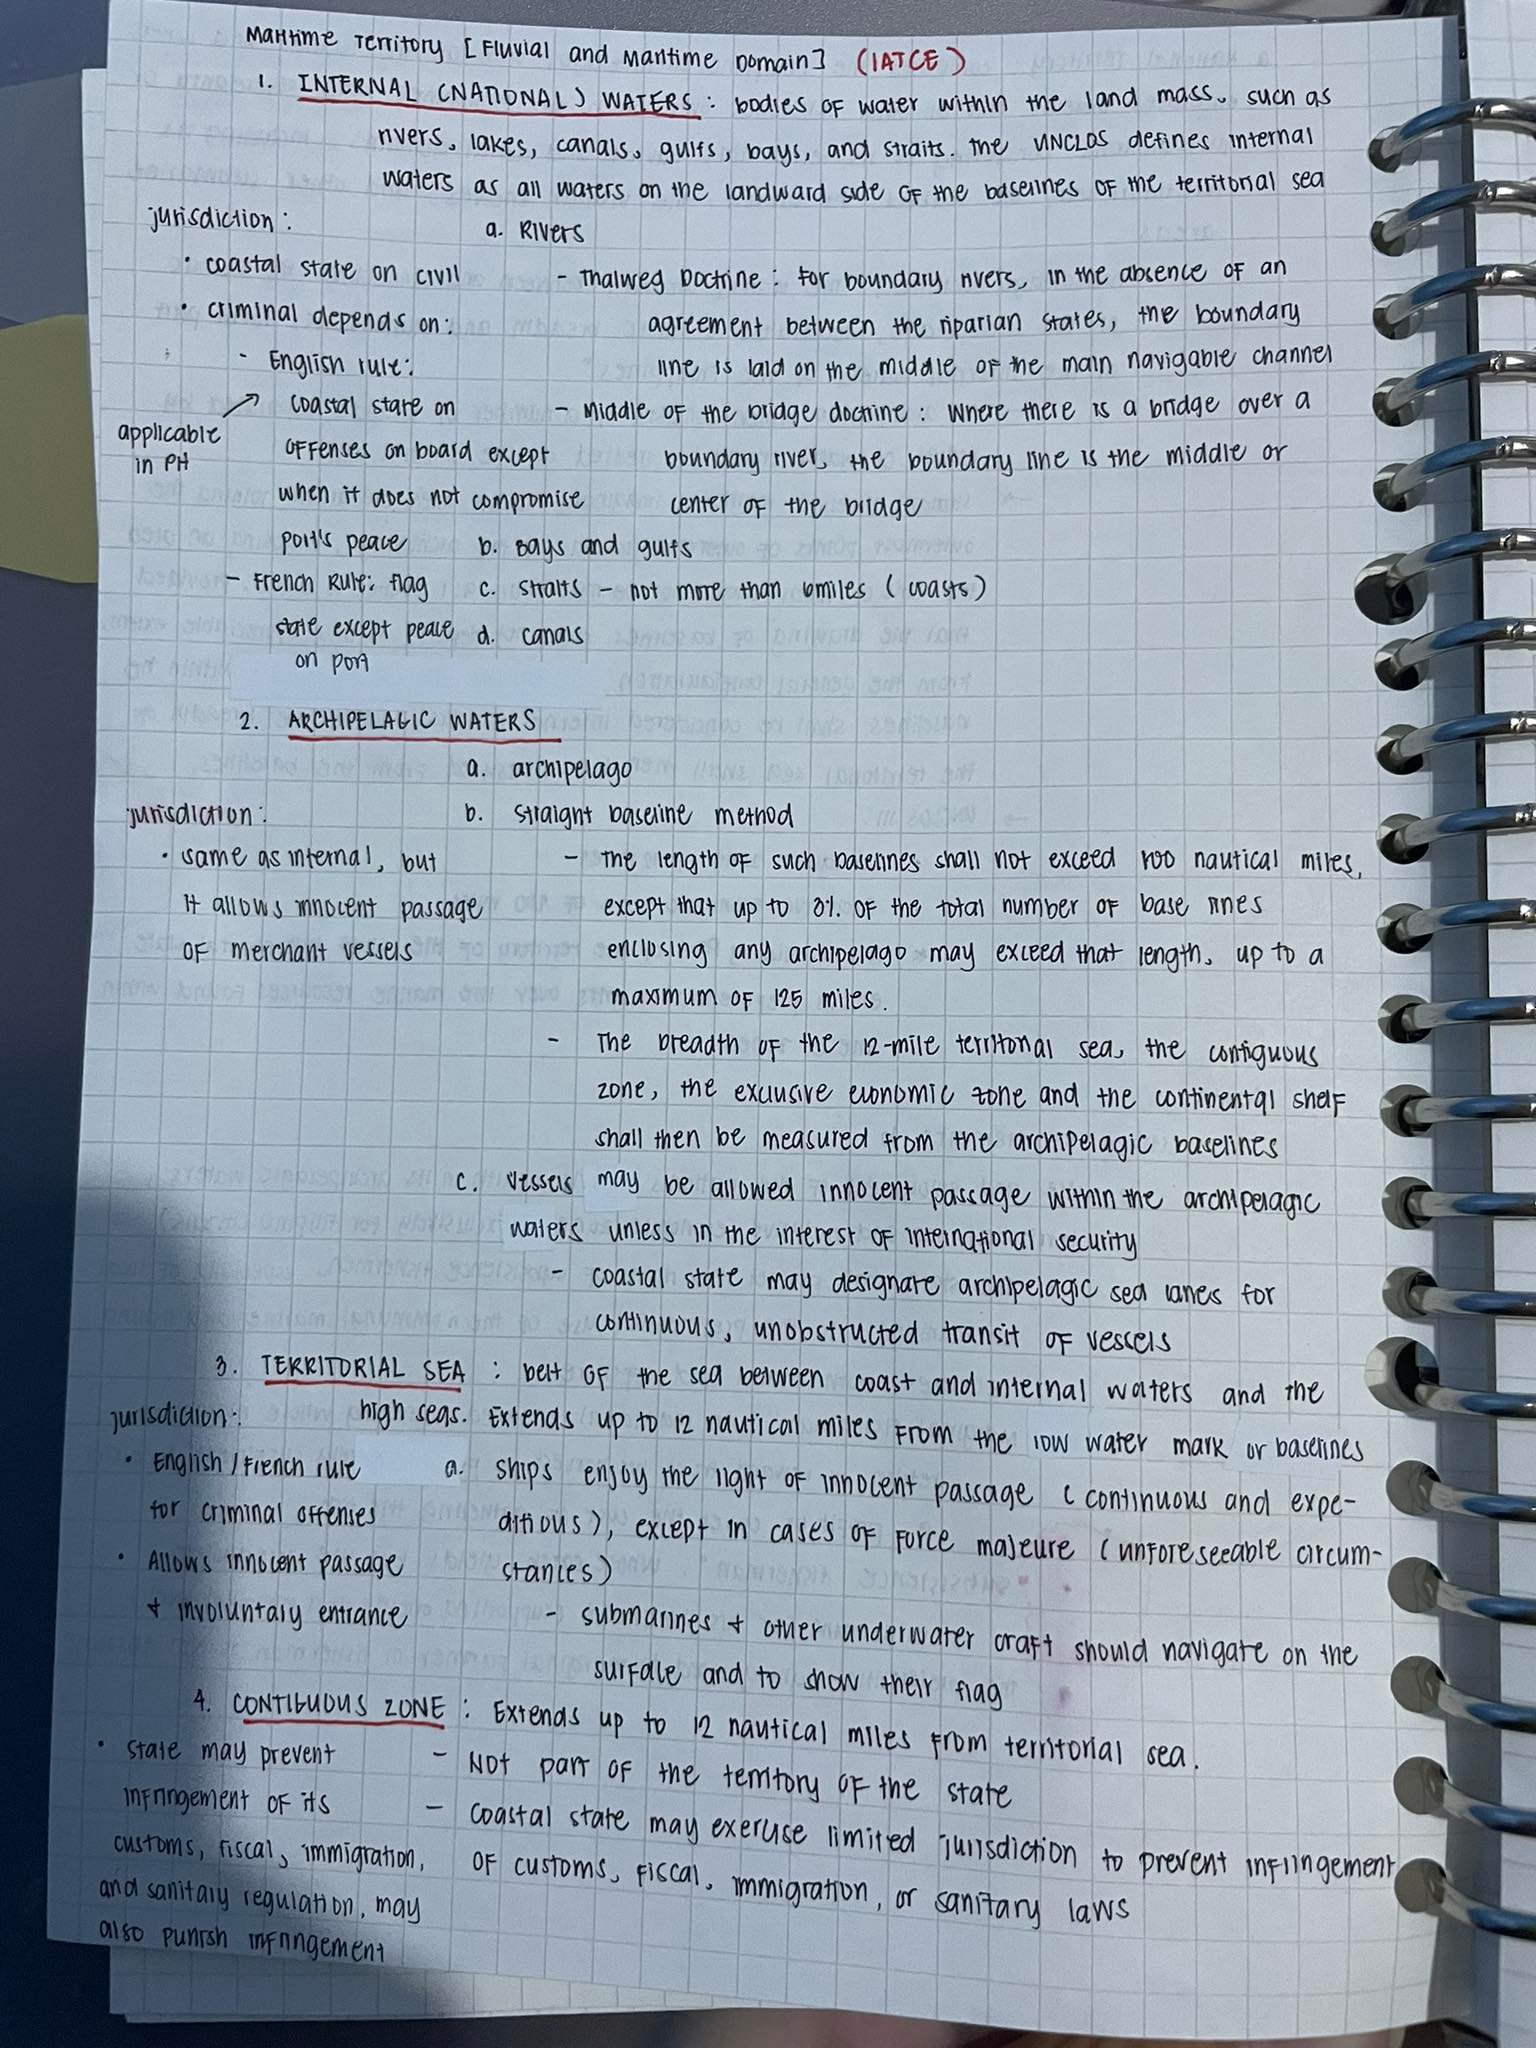 Maritime Territory [Fluvial and Maritime Domain] (IATCE)
1. INTERNAL (NATIONAL) WATERS : bodies of water within the land mass, such as
rivers, lakes, canals, gulfs, bays, and straits. The UNCLOS defines internal
waters as all waters on the landward side of the baselines of the territorial sea
jurisdiction :
• coastal state on civil
• criminal depends on :
- English rule :
coastal state on
offenses on board except
when it does not compromise
port's peace
applicable
in PH
- French Rule : flag
state except peace
on port
a. Rivers
- Thalweg Doctrine : for boundary rivers, in the absence of an
agreement between the riparian states, the boundary
line is laid on the middle of the main navigable channel
- Middle of the bridge doctrine : Where there is a bridge over a
boundary river, the boundary line is the middle or
center of the bridge
b. Bays and gulfs
c. straits - not more than 6miles (coasts)
d. canals
2. ARCHIPELAGIC WATERS
jurisdiction :
• same as internal, but
it allows innocent passage
of merchant vessels
a. archipelago
b. straight baseline method
- The length of such baselines shall not exceed 100 nautical miles,
except that up to 3% of the total number of base lines
enclosing any archipelago may exceed that length, up to a
maximum of 125 miles.
- The breadth of the 12-mile territorial sea, the contiguous
zone, the exclusive economic zone and the continental shelf
shall then be measured from the archipelagic baselines
c. vessels may be allowed innocent passage within the archipelagic
waters unless in the interest of international security
- coastal state may designate archipelagic sea lanes for
continuous, unobstructed transit of vessels
3. TERRITORIAL SEA : belt of the sea between coast and internal waters and the
high seas. Extends up to 12 nautical miles from the low water mark or baselines
jurisdiction :
• English / French rule
for criminal offenses
• Allows innocent passage
+ involuntary entrance
a. ships enjoy the right of innocent passage (continuous and expe-
ditious), except in cases of force majeure (unforeseeable circum-
stances)
- submarines + other underwater craft should navigate on the
surface and to show their flag
4. CONTIGUOUS ZONE : Extends up to 12 nautical miles from territorial sea.
• state may prevent
infringement of its
customs, fiscal, immigration,
and sanitary regulation, may
also punish infringement
- Not part of the territory of the state
- coastal state may exercise limited jurisdiction to prevent infringement
of customs, fiscal, immigration, or sanitary laws